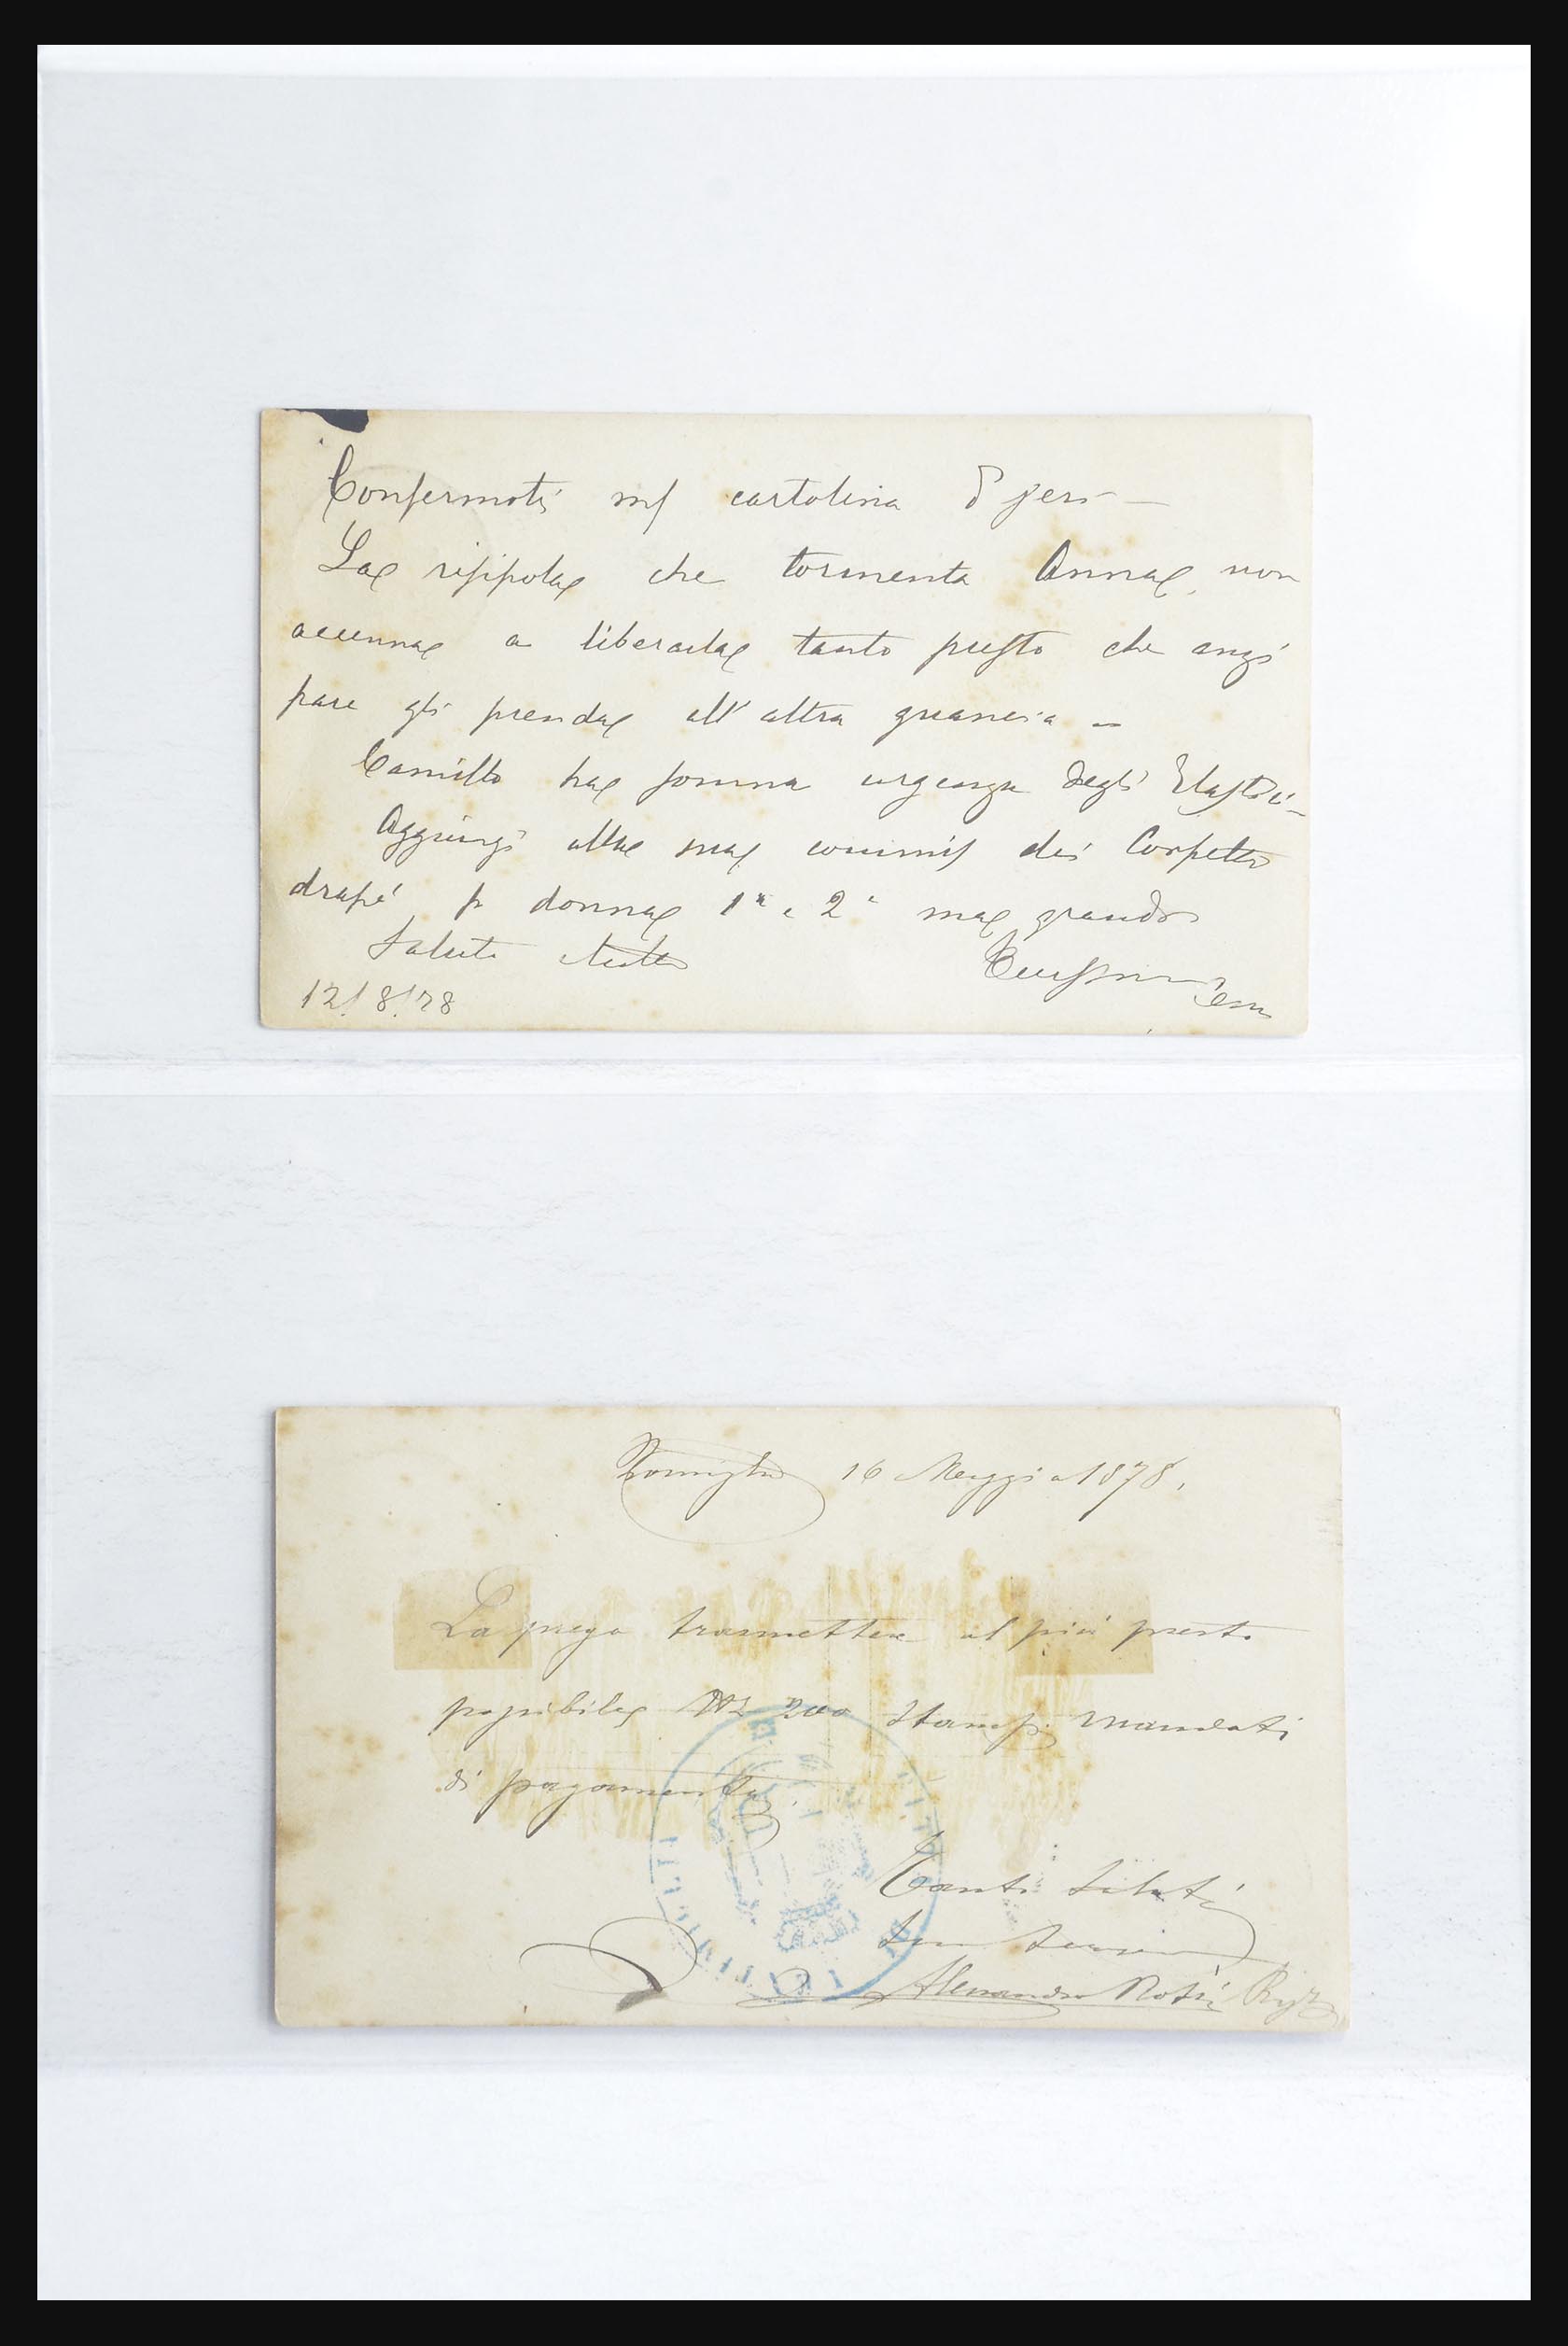 Confermoti mf cartolina d'jeri —
La risipola che tormenta Anna, non
accenna a liberarla tanto presto che anzi
pare gli prenda all'altra guancia —
Camillo ha somma urgenza degli Elastici —
Aggiungi alla mia commis dei Corpetti
drapé p donna 1ª e 2ª ma grandi
Saluti
12/8/78
16 Maggio 1878.
La prego trasmettere al più presto
possibile N° 200 Stampi mandati
di pagamento.
Tanti saluti
Alessandro